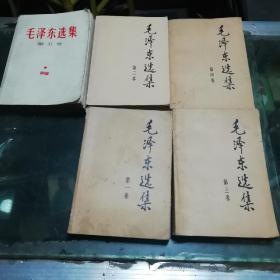 毛泽东选集
第五卷
毛泽东选集
第二卷
毛泽东选集
第四卷
毛泽东选集
第一卷
毛泽东选集
第三卷